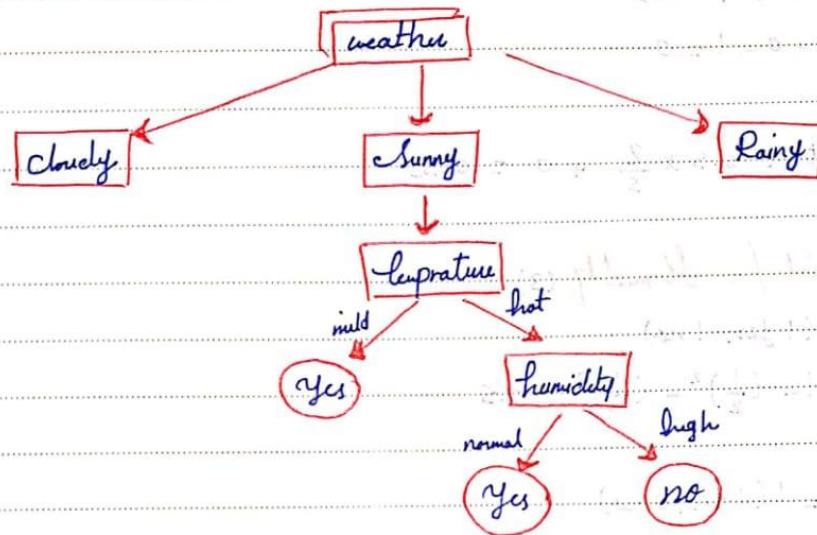 weather
Cloudy Sunny Rainy
temprature
mild hot
Yes humidity
normal high
Yes no